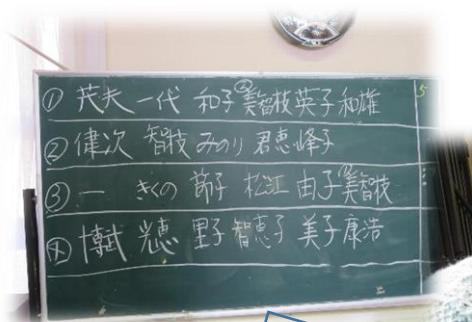 ① 茂夫 一代 和子 美智枝 英子 和雄
② 健次 智枝 みのり 君恵 峰子
③ 一 きくの 節子 松江 由子 美智枝
④ 博武 光恵 里子 智恵子 美子 康浩
5